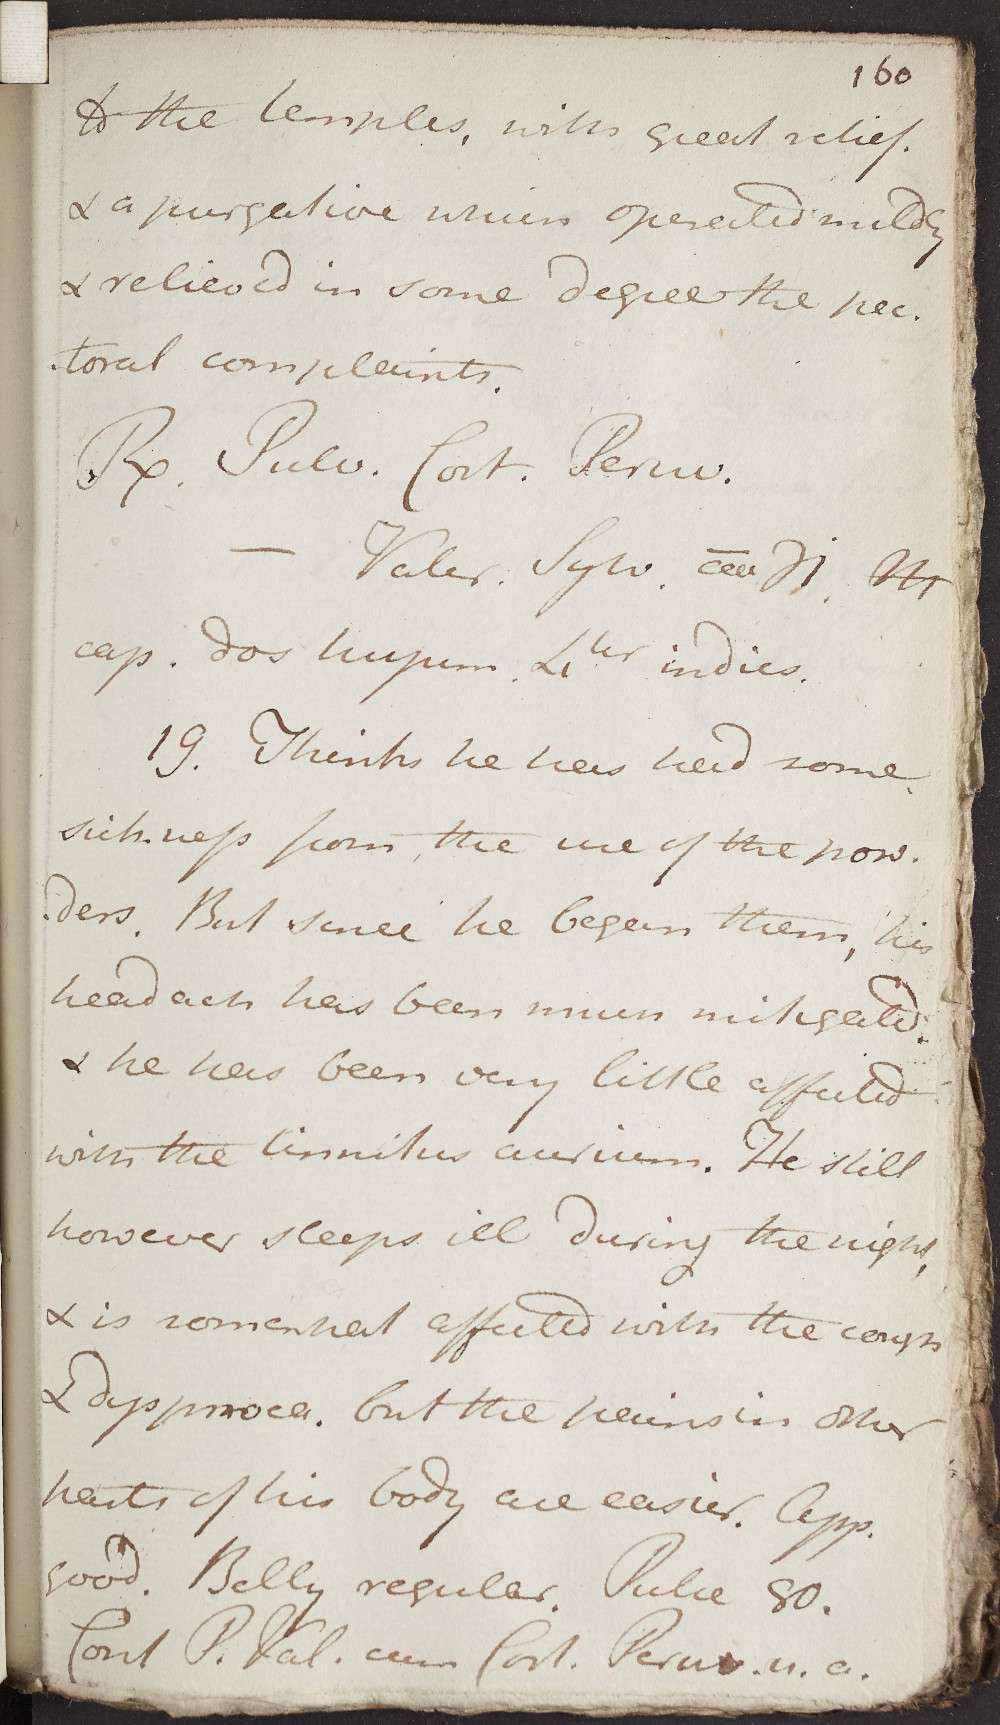 160
to the temples, with great relief.
& a purgative which operated mildly
& relieved in some degree the pec.
.toral complaints.
Rx. Pulv. Cort. Peruv.
— Valer. Sylv. aa ʒj. M
cap. dos hujusm. 4ter indies.
19. Thinks he has had some
sickness from the use of the pow.
.ders. But since he began them, his
headach has been much mitigated.
& he has been very little affected
with the tinnitus aurium. He still
however sleeps ill during the night,
& is somewhat affected with the cough
& dyspnoea. but the pains in other
parts of his body are easier. App.
good. Belly regular. Pulse 80.
Cont P. Val. cum Cort. Peruv. u. a.